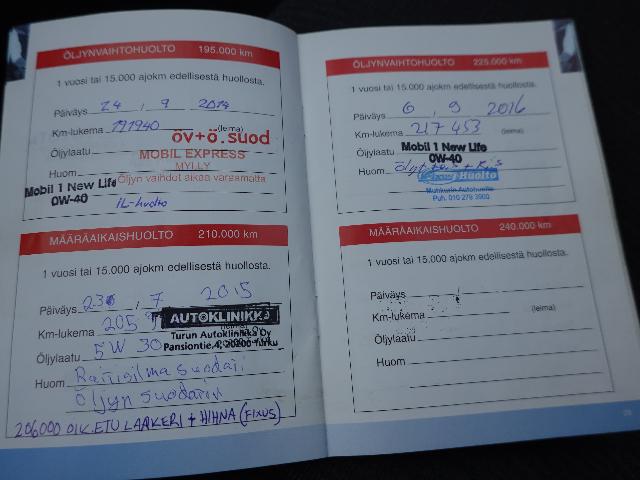 ÖLJYNVAIHTOHUOLTO 195.000 km
1 vuosi tai 15.000 ajokm edellisestä huollosta.
Päiväys 24 . 9 2014
Km-lukema 191940 (leima)
öv+ö.suod
Öljylaatu
MOBIL EXPRESS
MYLLY
Huom Öljyn vaihdot aikaa varaamatta
Mobil 1 New Life
0W-40
IL-huolto
MÄÄRÄAIKAISHUOLTO 210.000 km
1 vuosi tai 15.000 ajokm edellisestä huollosta.
Päiväys 7 2015
Km-lukema 205
AUTOKLINIKKA
Turun Autoklinikka Oy
Öljylaatu 5W 30 Pansiontie 4, Turku
Huom Raitisilma suodatin
Öljyn suodatin
206000 OIK.ETU LAAKERI + HIHNA (FIXUS)
ÖLJYNVAIHTOHUOLTO 225.000 km
1 vuosi tai 15.000 ajokm edellisestä huollosta.
Päiväys 6 . 9 2016
Km-lukema 217 453 (leima)
Öljylaatu Mobil 1 New Life
0W-40
Huom
Huolto
Muhkurin Autohuolto
Puh. 010 279 3900
MÄÄRÄAIKAISHUOLTO 240.000 km
1 vuosi tai 15.000 ajokm edellisestä huollosta.
Päiväys
Km-lukema (leima)
Öljylaatu
Huom